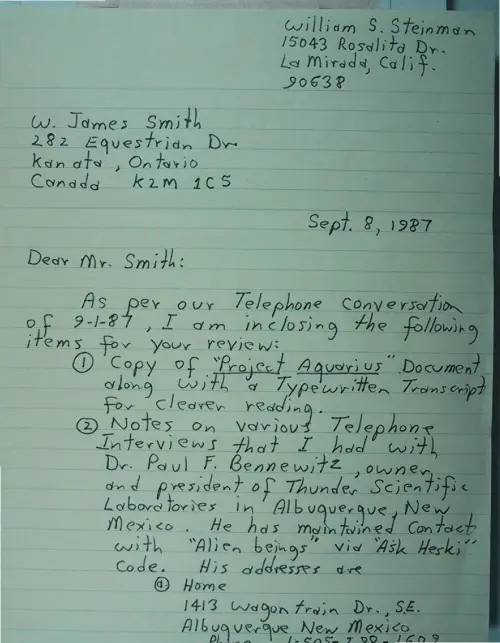 William S. Steinman
15043 Rosalita Dr.
La Mirada, Calif.
90638
W. James Smith
282 Equestrian Dr.
Kanata, Ontario
Canada K2M 1C5
Sept. 8, 1987
Dear Mr. Smith:
As per our Telephone conversation
of 9-1-87, I am inclosing the following
items for your review:
① Copy of "Project Aquarius" Document
along with a Typewritten Transcript
for clearer reading.
② Notes on various Telephone
Interviews that I had with
Dr. Paul F. Bennewitz, owner
and president of Thunder Scientific
Laboratories in Albuquerque, New
Mexico. He has maintained Contact
with "Alien beings" via "Ask Heski"
Code. His addresses are
ⓐ Home
1413 Wagontrain Dr., S.E.
Albuquerque New Mexico